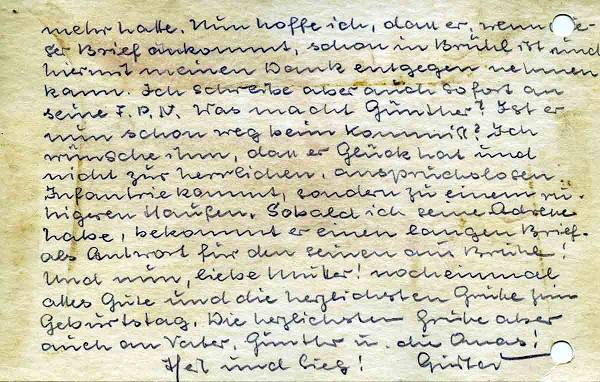 mehr hatte. Nun hoffe ich, dass er, wenn die-
ser Brief ankommt, schon in Brühl ist und
hiermit meinen Dank entgegen nehmen
kann. Ich schreibe aber auch sofort an
seine F.P.N. Was macht Günther? Ist er
nun schon weg beim Kommiss? Ich
wünsche ihm, dass er Glück hat und
nicht zur herrlichen, anspruchslosen
Infantrie kommt, sondern zu einem ru-
higeren Haufen. Sobald ich seine Adresse
habe, bekommt er einen langen Brief
als Antwort für den seinen aus Brühl!
Und nun, liebe Mutter! noch einmal
alles Gute und die herzlichsten Grüße zum
Geburtstag. Die herzlichsten Grüße aber
auch an Vater, Günther u. die Omas!
Heil und Sieg!